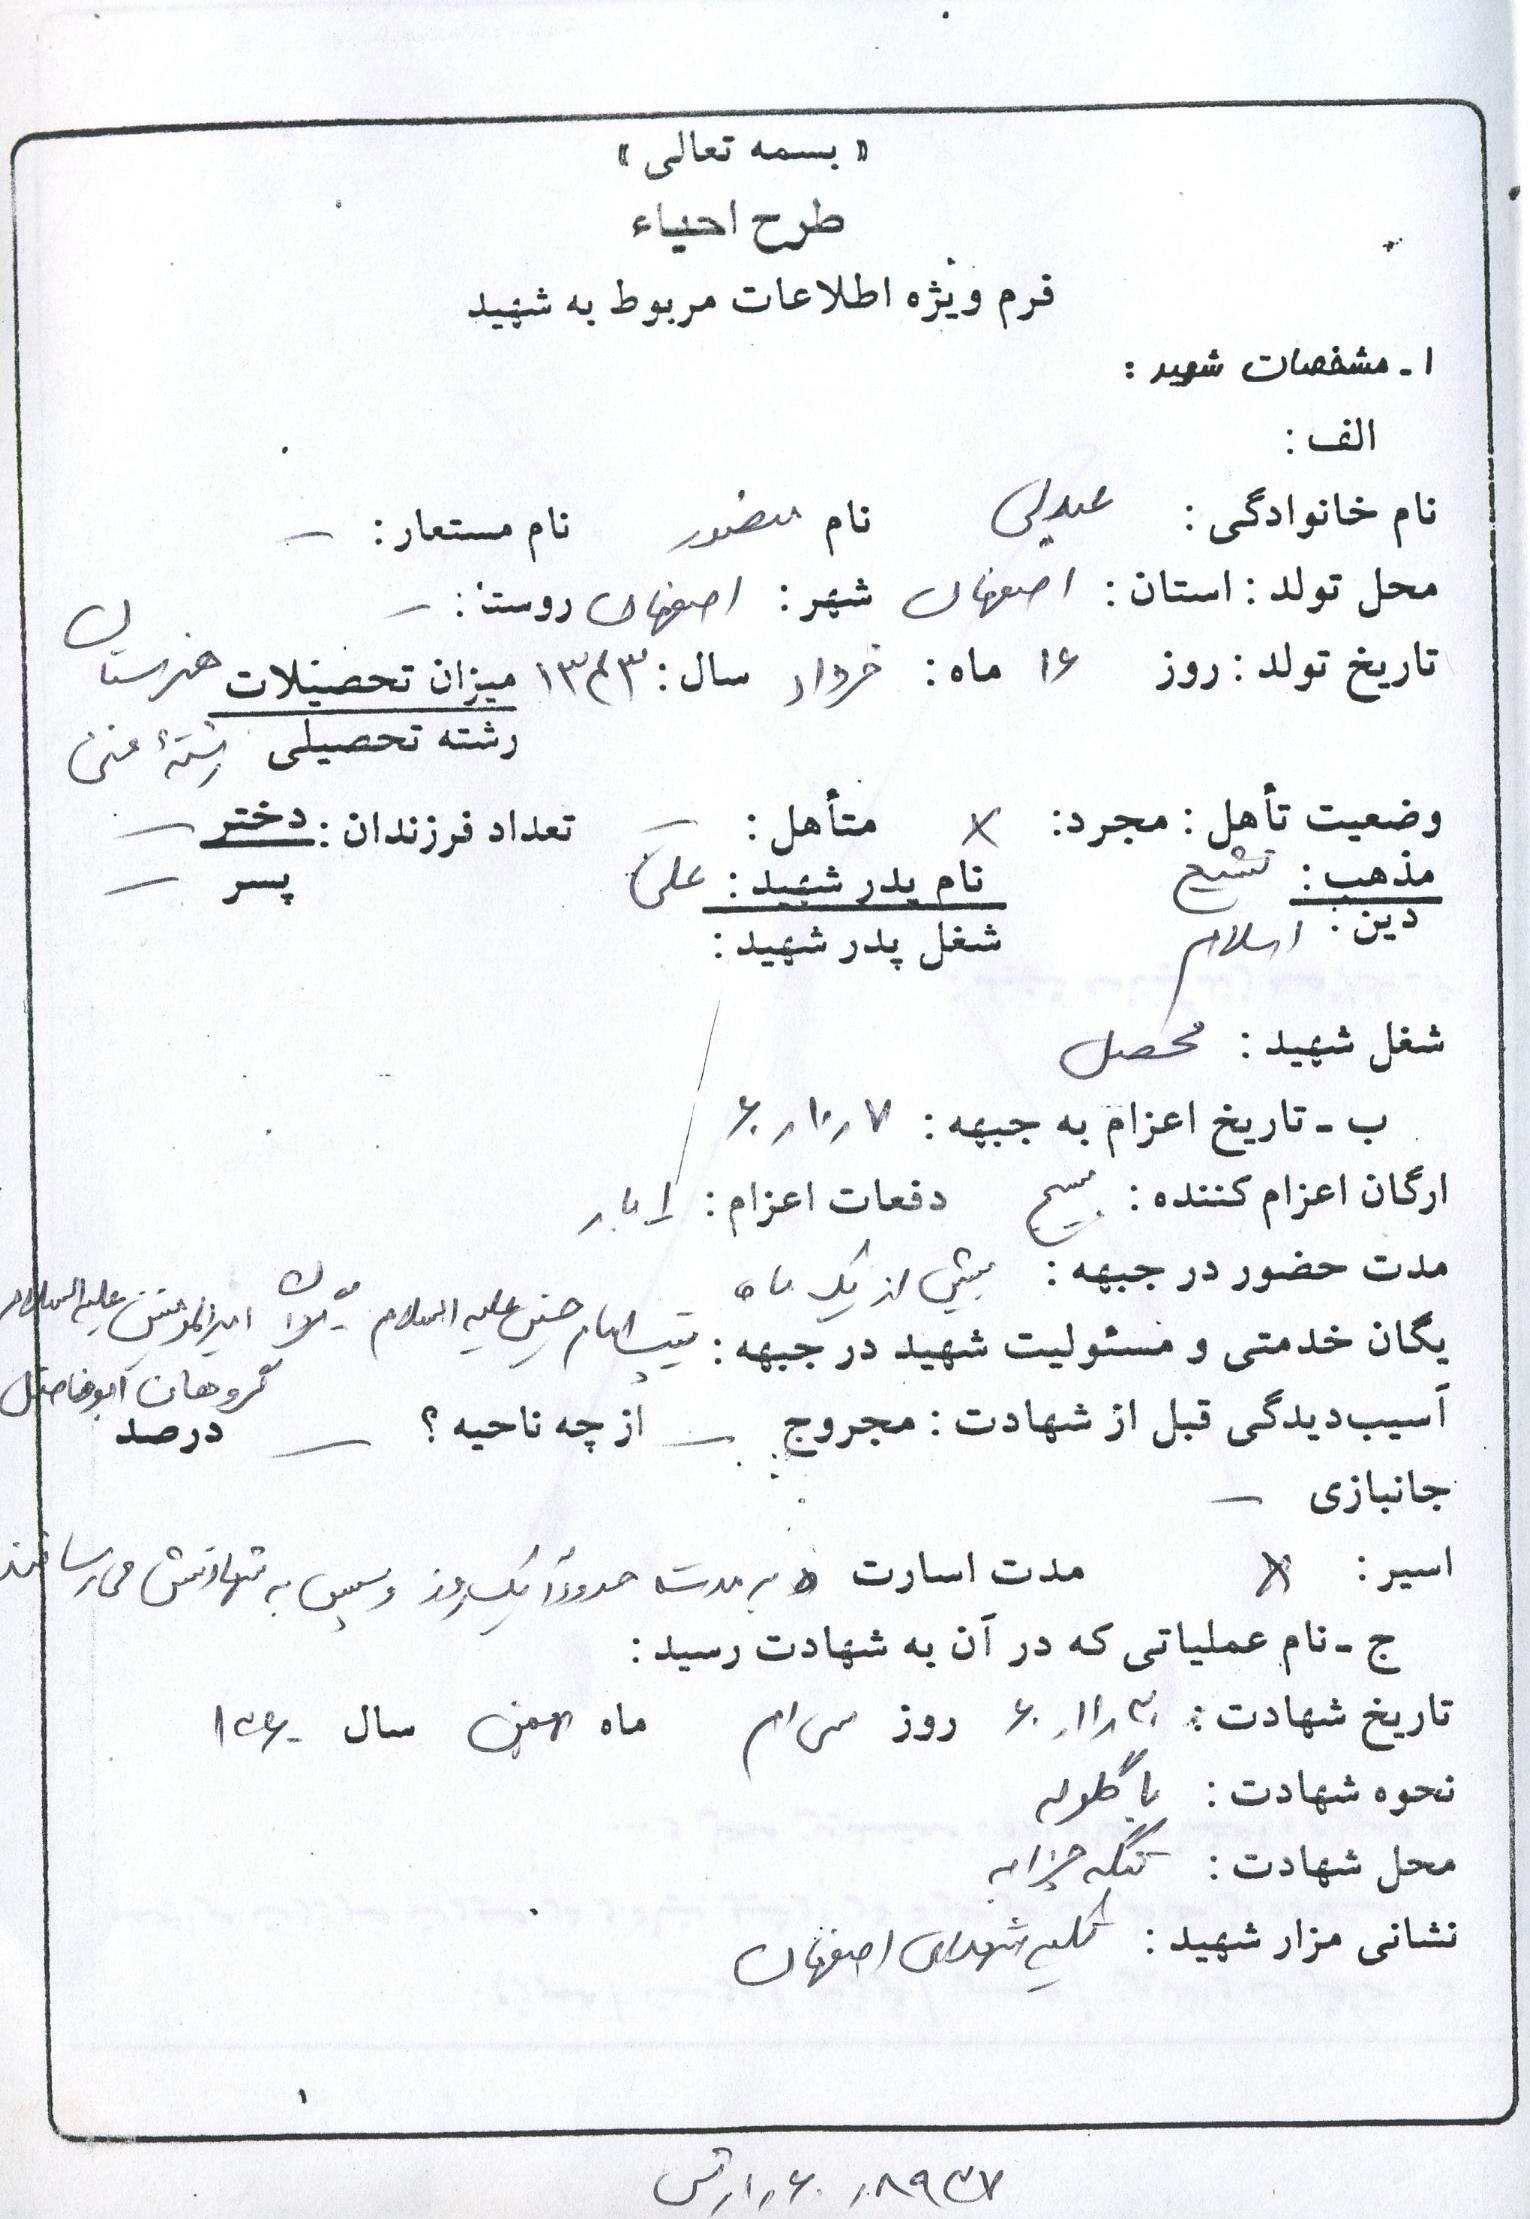 « بسمه تعالی »
طرح احیاء
فرم ویژه اطلاعات مربوط به شهید
۱ - مشخصات شهید :
الف :
نام خانوادگی : عبدلی نام منصور نام مستعار : –
محل تولد : استان : اصفهان شهر : اصفهان روستا : –
تاریخ تولد : روز ۱۶ ماه : خرداد سال : ۱۳۴۳ میزان تحصیلات هنرستان
رشته تحصیلی رشتهٔ فنی
وضعیت تأهل : مجرد : × متأهل : – تعداد فرزندان : دختر –
پسر –
مذهب : تشیع نام پدر شهید : علی
دین : اسلام شغل پدر شهید :
شغل شهید : محصل
ب - تاریخ اعزام به جبهه : ۷ر۱۰ر۶۰
ارگان اعزام کننده : بسیج دفعات اعزام : ۱ بار
مدت حضور در جبهه : بیش از یک ماه
یگان خدمتی و مسئولیت شهید در جبهه : تیپ امام حسین علیه السلام - گردان امیرالمومنین علیه السلام
گروهان ابوفاضل
آسیب‌دیدگی قبل از شهادت : مجروح – از چه ناحیه ؟ – درصد
جانبازی –
اسیر : × مدت اسارت به مدت حدوداً یک روز و سپس به شهادتش می رسانند
ج - نام عملیاتی که در آن به شهادت رسید :
تاریخ شهادت : ۳۰ر۱۱ر۶۰ روز سی ام ماه بهمن سال ۱۳۶۰
نحوه شهادت : با گلوله
محل شهادت : تنگه چزابه
نشانی مزار شهید : تکیه شهدای اصفهان
۱